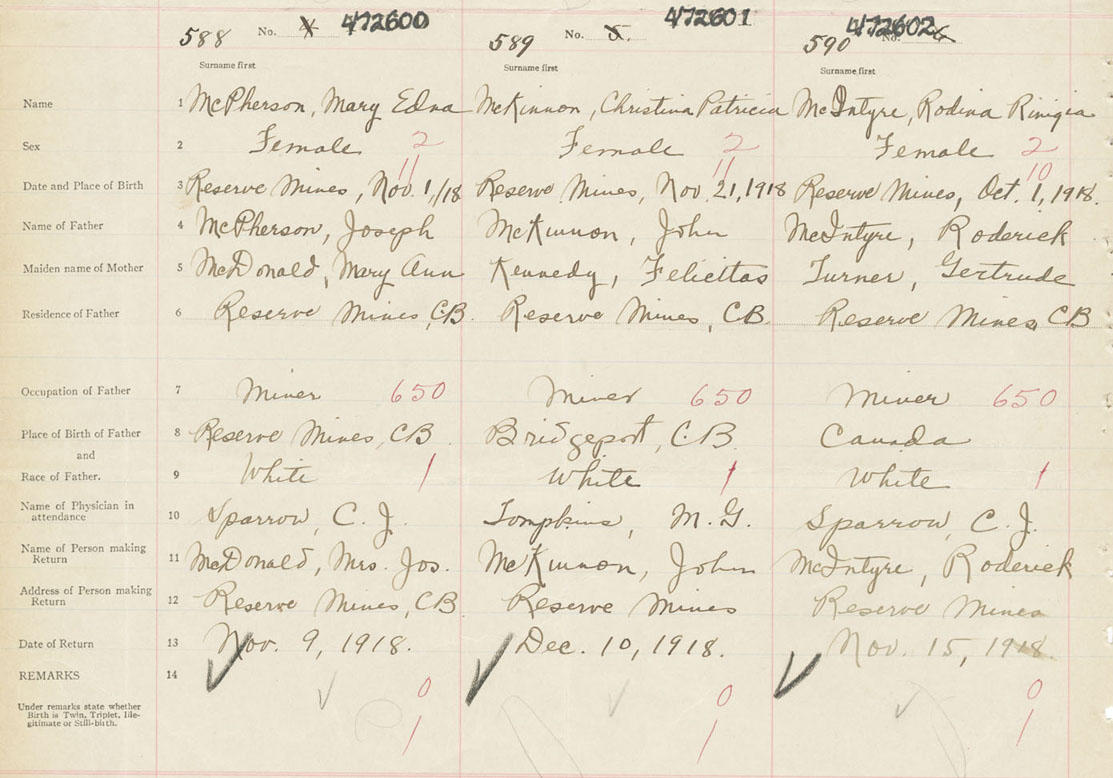 588 No. 4 472600 589 No. 5. 472601 590 No. 6 472602
Surname first Surname first Surname first
Name 1 McPherson, Mary Edna McKinnon, Christina Patricia McIntyre, Rodina Rinigia
Sex 2 Female 2 Female 2 Female 2
11 11 10
Date and Place of Birth 3 Reserve Mines, Nov. 1/18 Reserve Mines, Nov. 21, 1918 Reserve Mines, Oct. 1, 1918.
Name of Father 4 McPherson, Joseph McKinnon, John McIntyre, Roderick
Maiden name of Mother 5 McDonald, Mary Ann Kennedy, Felicitas Turner, Gertrude
Residence of Father 6 Reserve Mines, C.B. Reserve Mines, C.B. Reserve Mines, C.B
Occupation of Father 7 Miner 650 Miner 650 Miner 650
Place of Birth of Father 8 Reserve Mines, C.B Bridgeport, C.B. Canada
and
Race of Father. 9 White 1 White 1 White 1
Name of Physician in
attendance 10 Sparrow, C. J. Tompkins, M. G. Sparrow, C. J.
Name of Person making
Return 11 McDonald, Mrs. Jos. McKinnon, John McIntyre, Roderick
Address of Person making
Return 12 Reserve Mines, C.B Reserve Mines Reserve Mines
Date of Return 13 Nov. 9, 1918. Dec. 10, 1918. Nov. 15, 1918.
REMARKS 14
0 0 0
Under remarks state whether
Birth is Twin, Triplet, Ille-
gitimate or Still-birth.
1 1 1